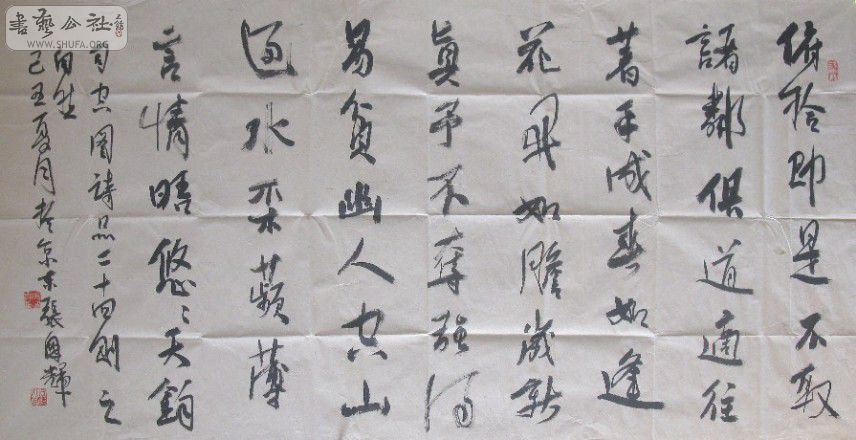 書藝公社
WWW.SHUFA.ORG
俯拾即是不取
諸鄰俱道適往
著手成春如逢
花開如瞻歲新
真予不奪強得
易貧幽人空山
過水采蘋薄
言情晤悠〻天鈞
司空圖詩品二十四則之
自然
己丑夏月於京東張輝